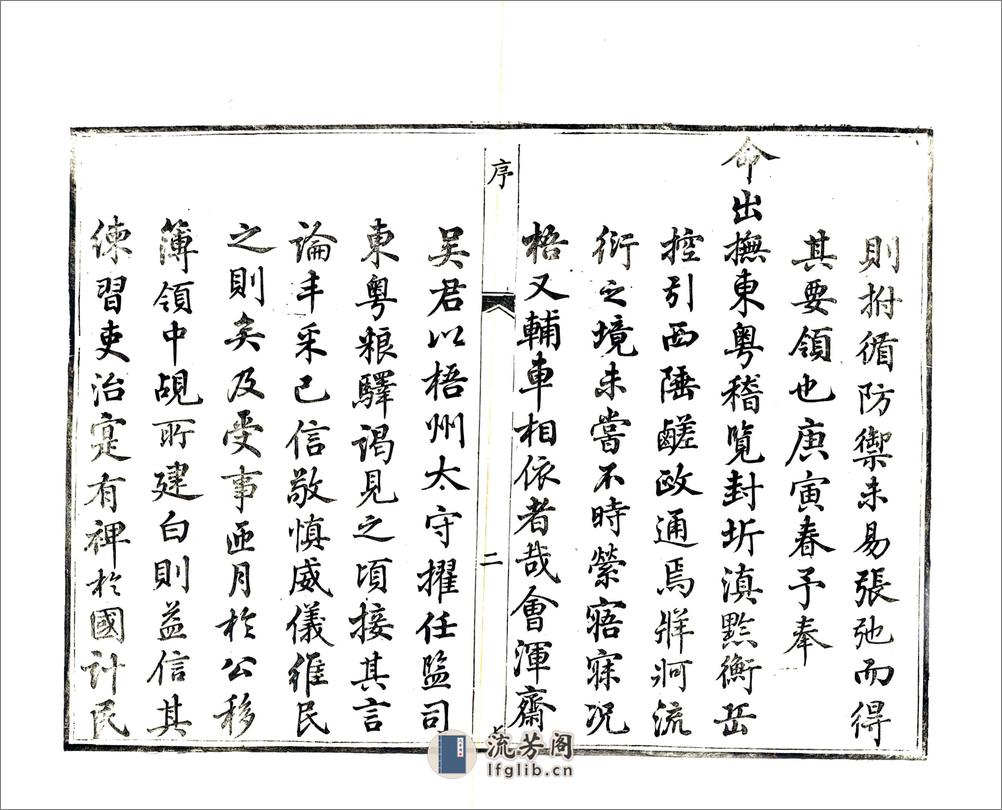 則拊循防禦未易張弛而得
其要領也庚寅春予奉
命出撫東粵稽覽封圻滇黔衡岳
控引西陲鹺政通焉牂牁流
衍之境未嘗不時縈寤寐况
梧又輔車相依者哉會渾齋
序
二
吴君以梧州太守擢任監司
東粵粮驛謁見之頃接其言
論丰采已信敬慎威儀維民
之則矣及受事匝月於公移
簿領中覘所建白則益信其
練習吏治寔有裨於國計民
流芳阁
lfglib.cn